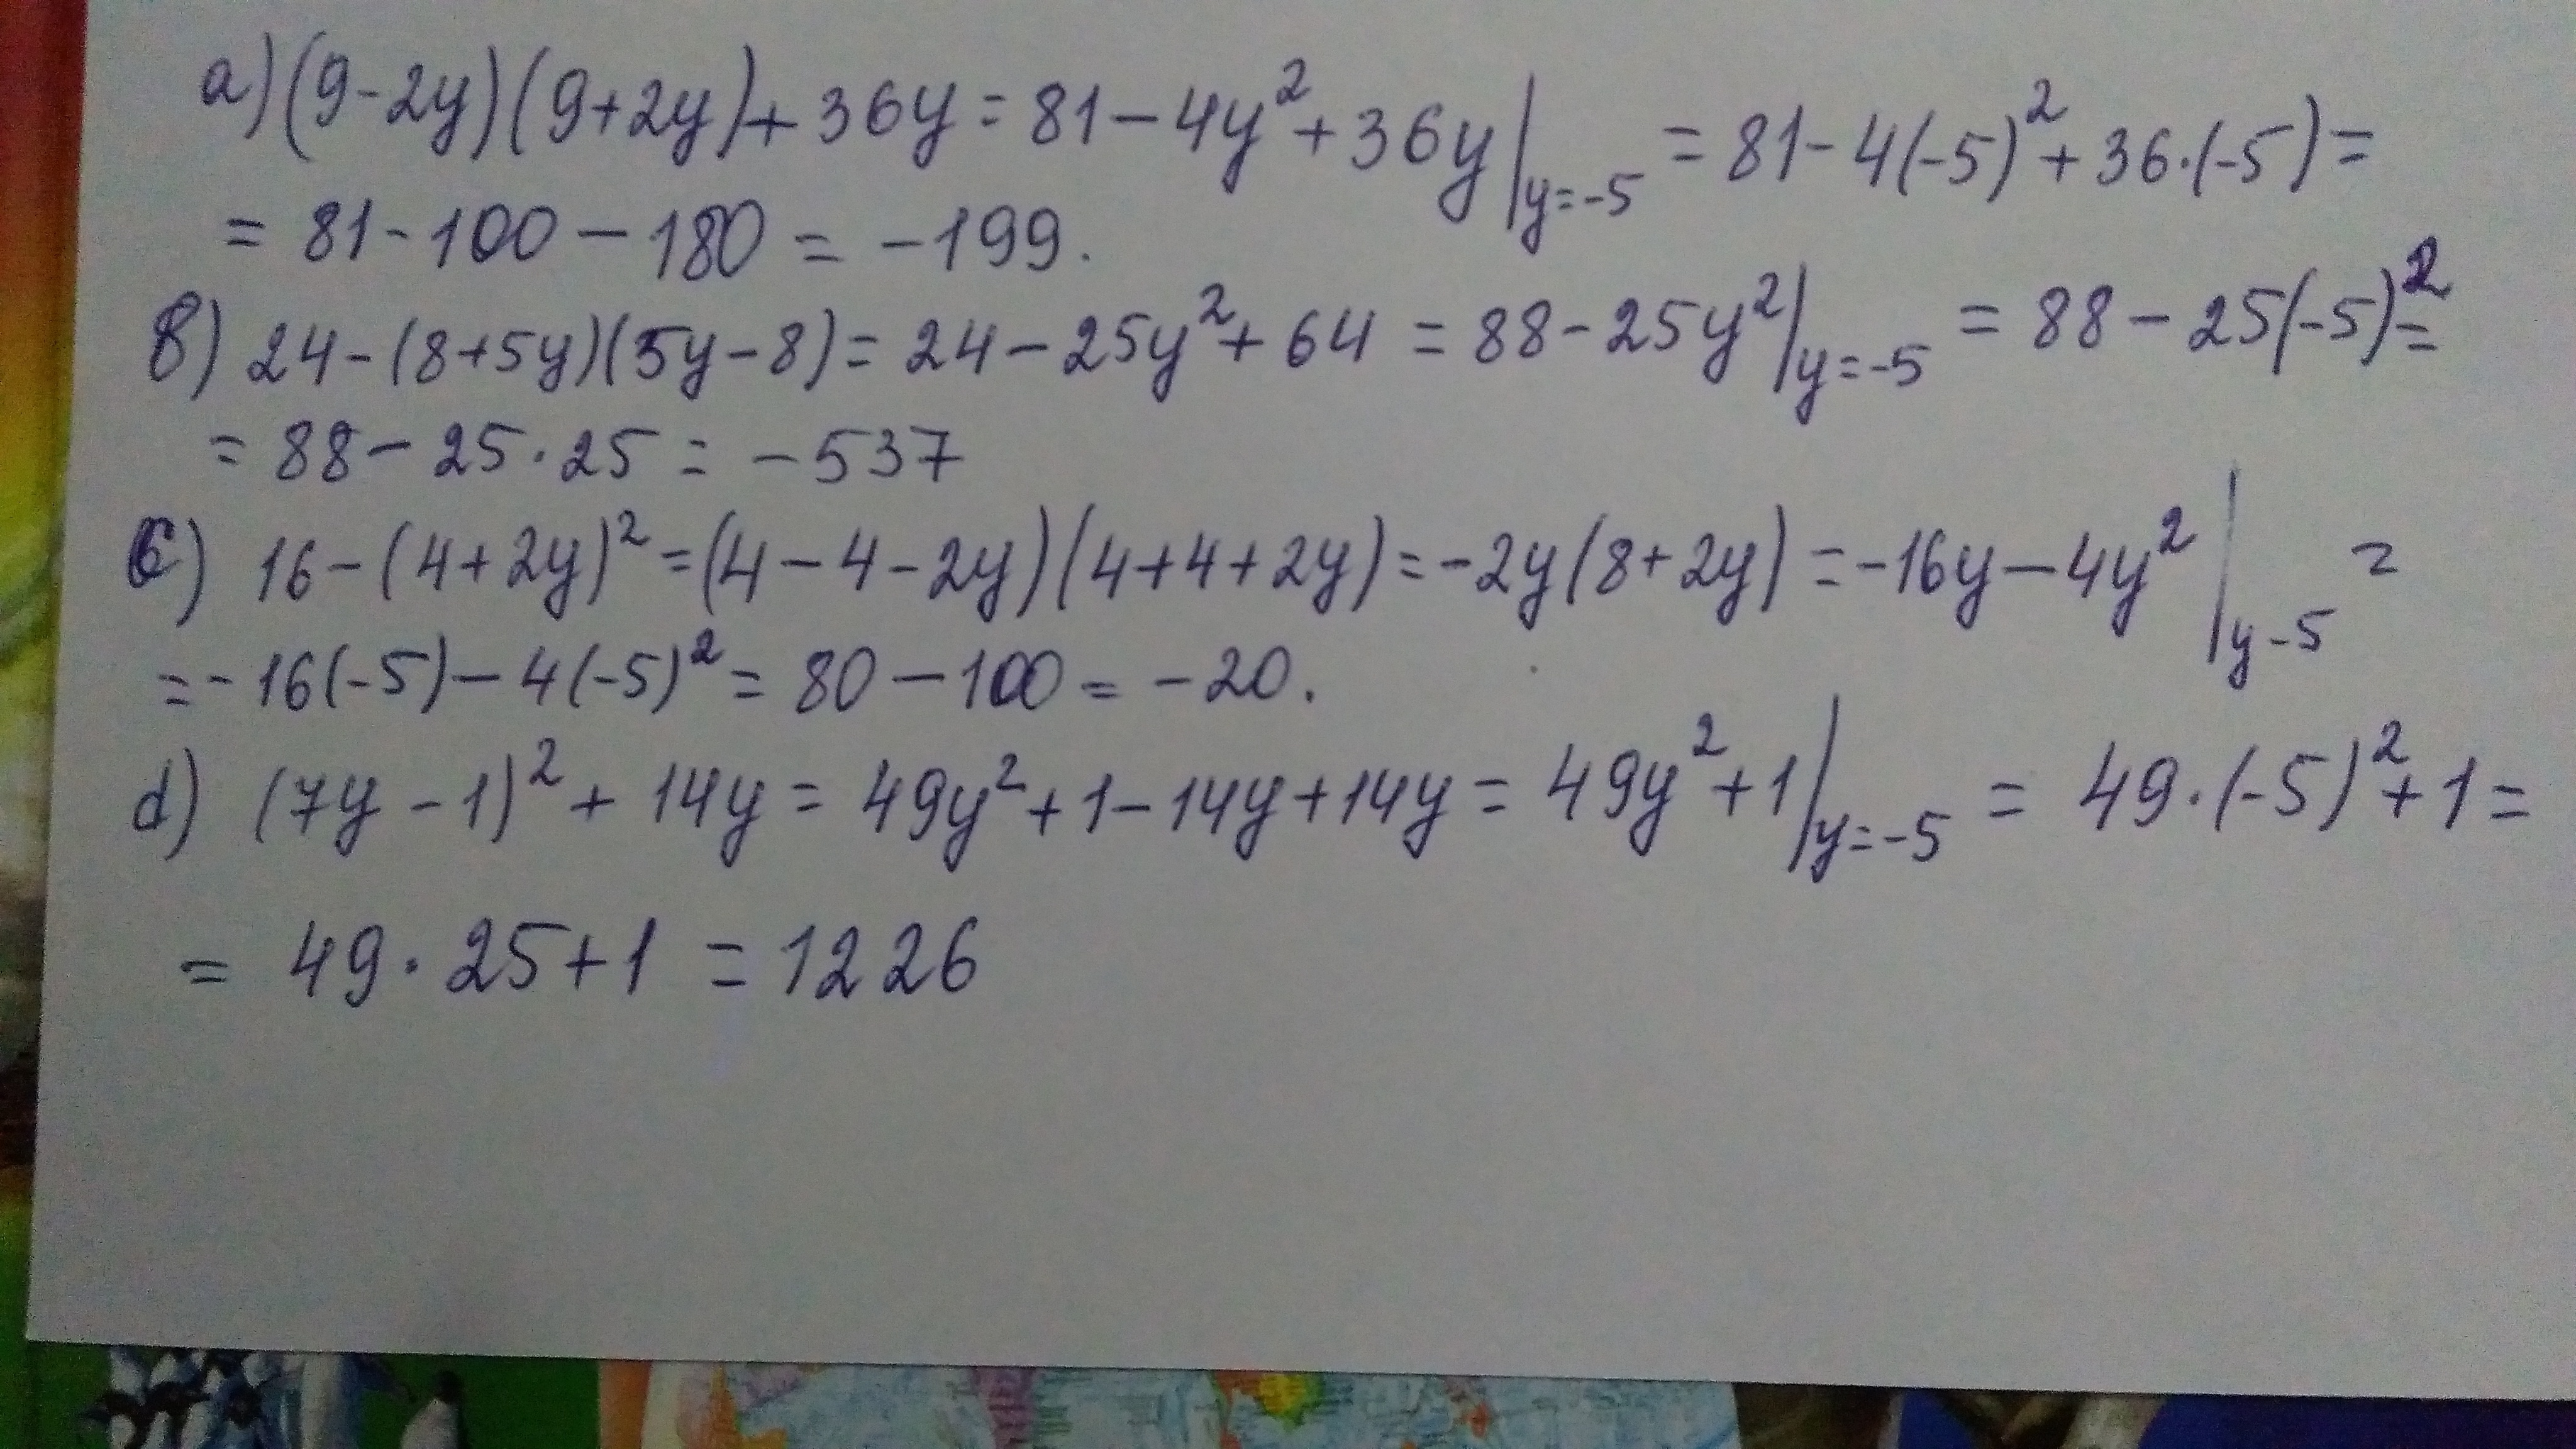 a) (9-2y)(9+2y)+36y=81-4y²+36y|y=-5 =81-4(-5)²+36·(-5)=
=81-100-180=-199.
b) 24-(8+5y)(5y-8)=24-25y²+64=88-25y²|y=-5 =88-25(-5)²=
=88-25·25=-537
c) 16-(4+2y)²=(4-4-2y)(4+4+2y)=-2y(8+2y)=-16y-4y²|y-5 =
=-16(-5)-4(-5)²=80-100=-20.
d) (7y-1)²+14y=49y²+1-14y+14y=49y²+1|y=-5 =49·(-5)²+1=
=49·25+1=1226